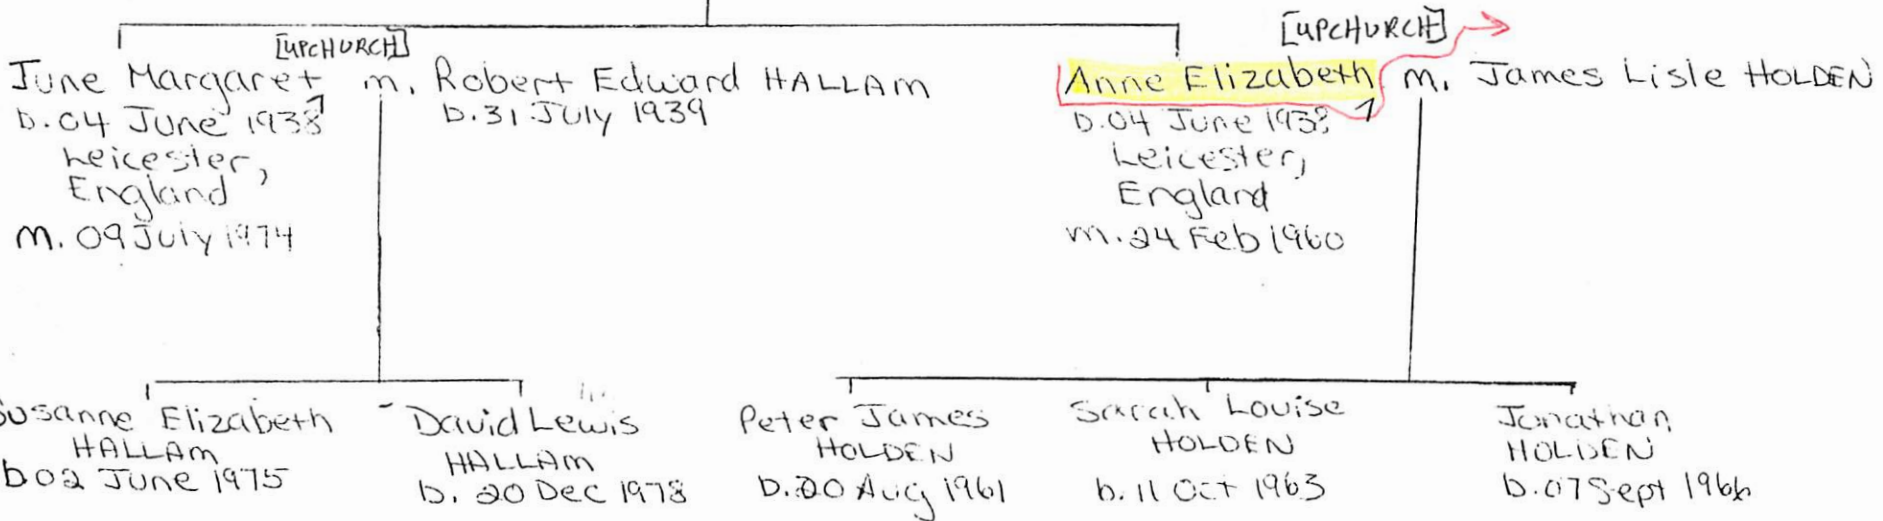 [UPCHURCH]
June Margaret m. Robert Edward HALLAM
b.04 June 1938
b.31 July 1939
Leicester,
England
m. 09 July 1974
[UPCHURCH]
Anne Elizabeth m. James Lisle HOLDEN
b.04 June 1938
Leicester,
England
m.24 Feb 1960
Susanne Elizabeth
HALLAM
b02 June 1975
David Lewis
HALLAM
b. 20 Dec 1978
Peter James
HOLDEN
b.20 Aug 1961
Sarah Louise
HOLDEN
b. 11 Oct 1963
Jonathan
HOLDEN
b.07 Sept 1966